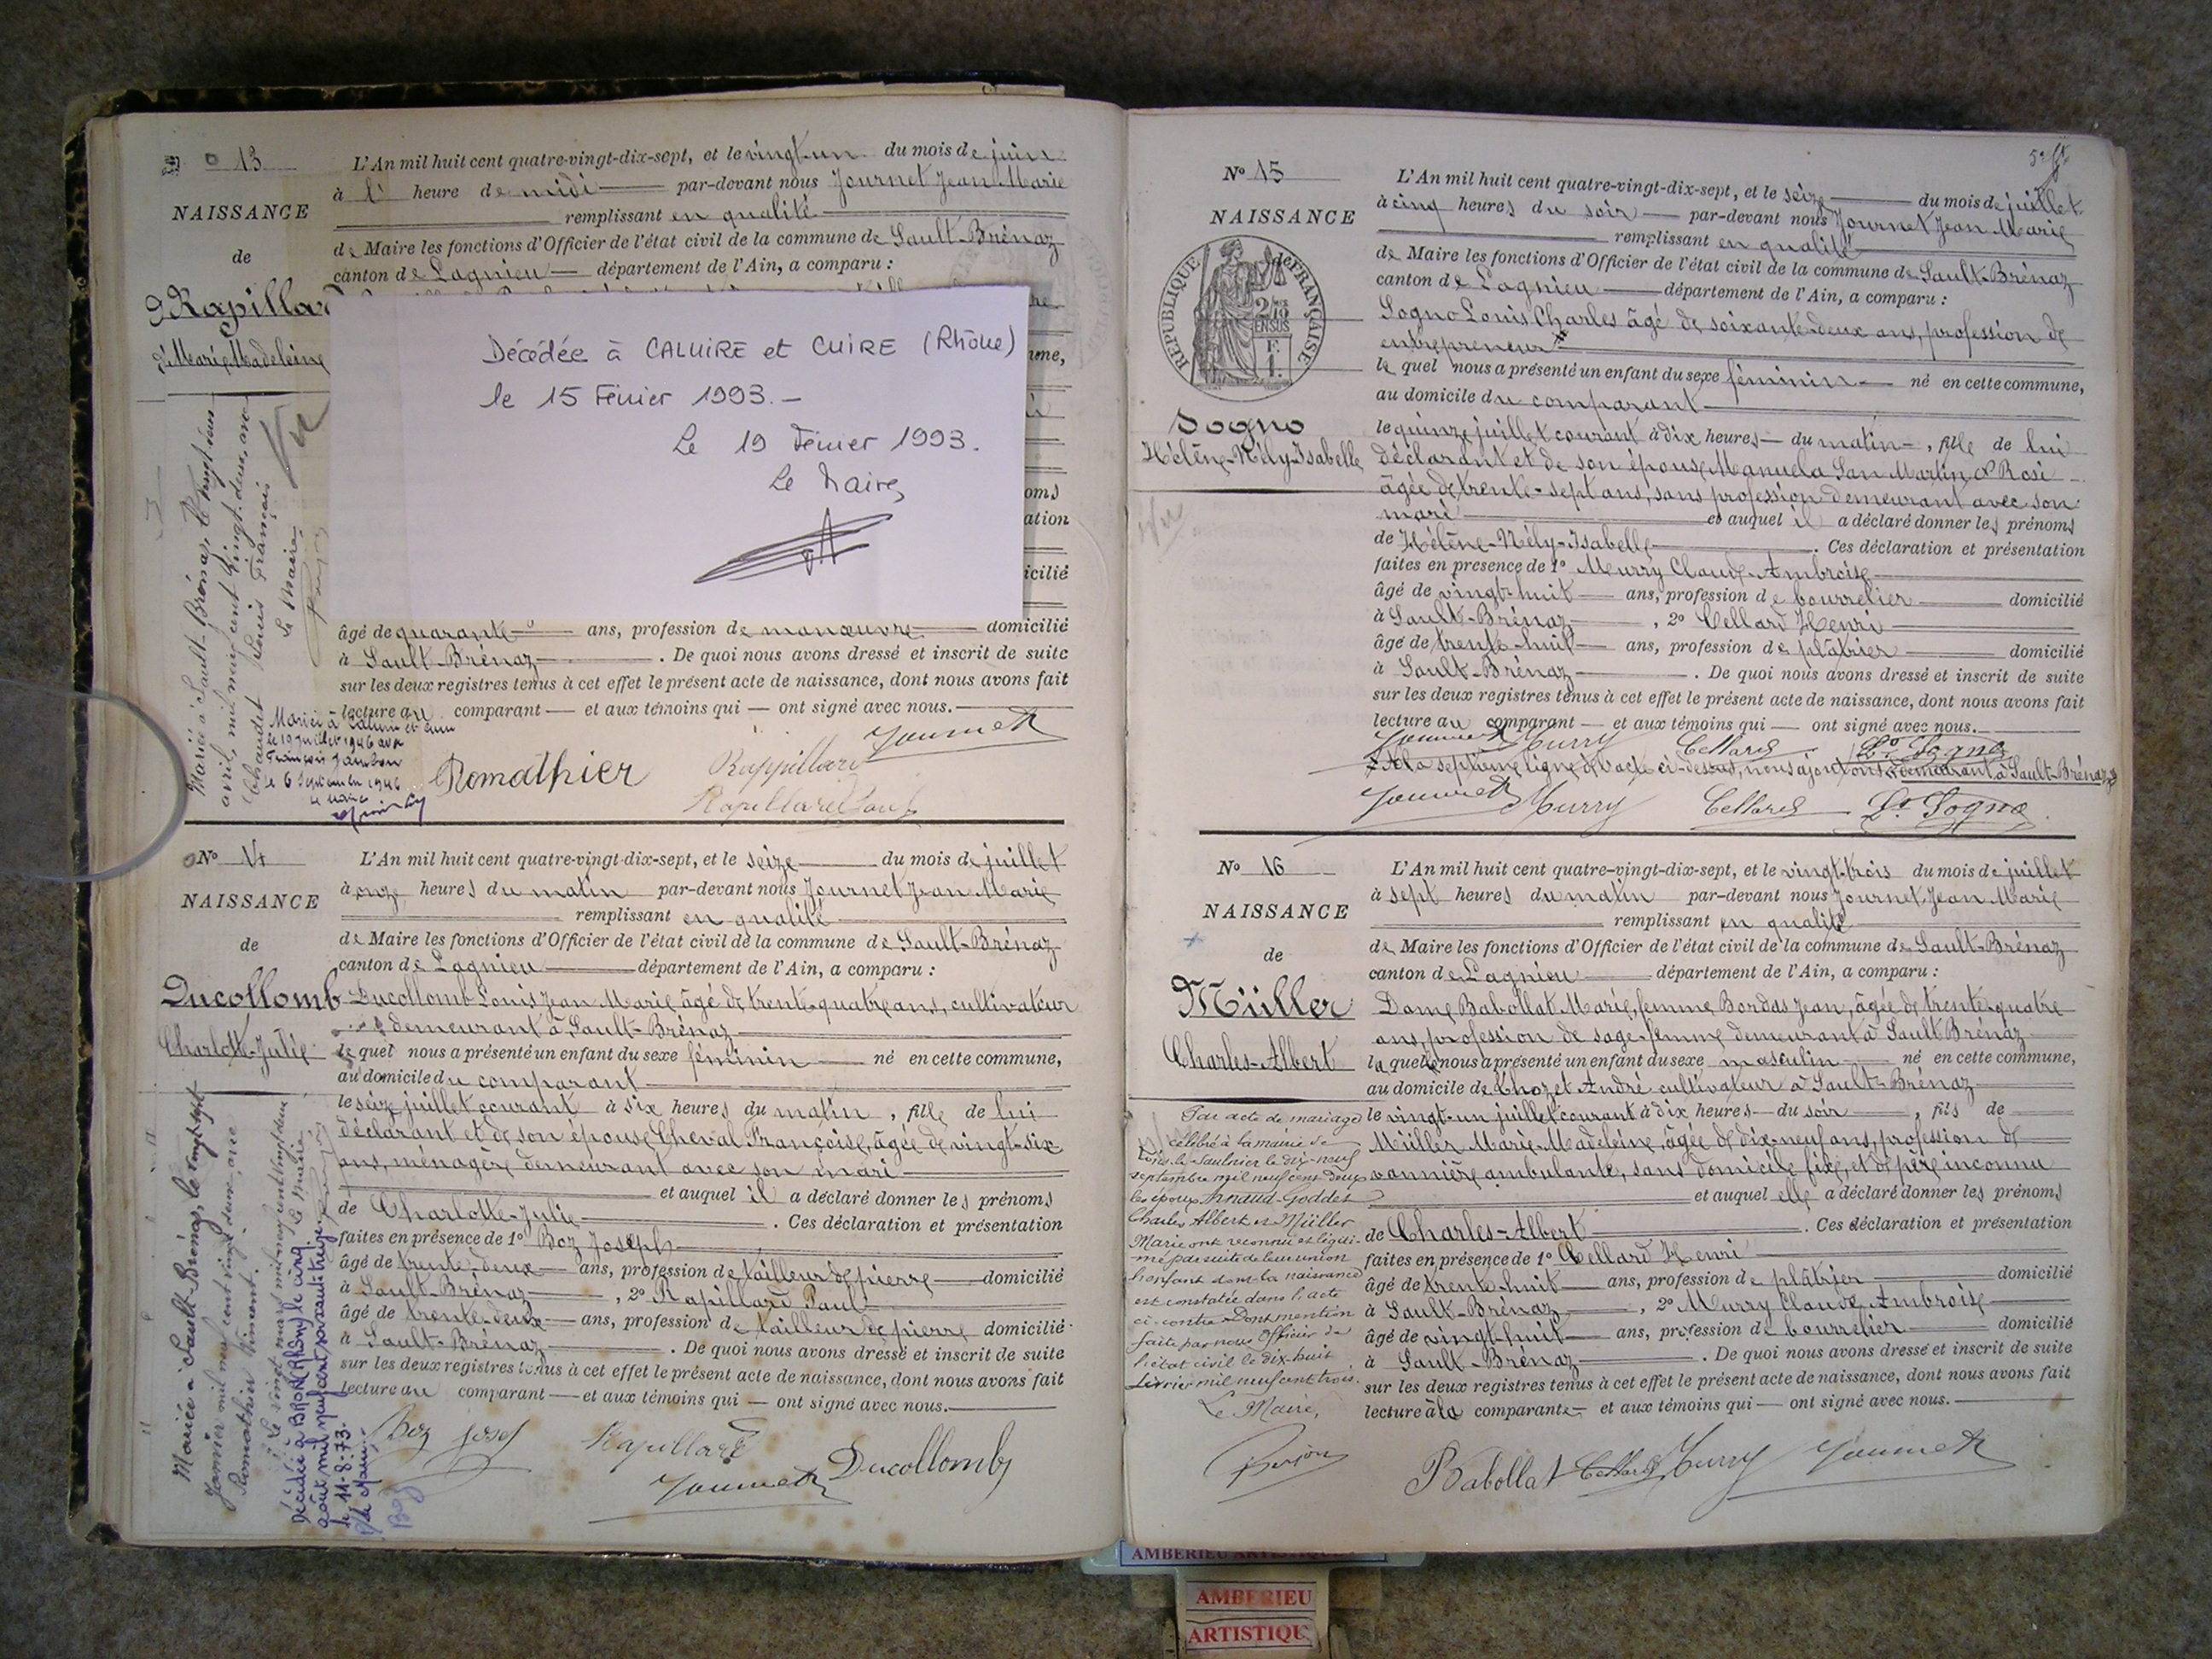 13
NAISSANCE
de
Rapillard
Marie Madeleine
L'An mil huit cent quatre-vingt-dix-sept, et le vingt-un du mois de juin
à l' heure de midi par-devant nous Journet Jean Marie
remplissant en qualité
de Maire les fonctions d'Officier de l'état civil de la commune de Sault-Brénaz
canton de Lagnieu département de l'Ain, a comparu :
Décédée à CALUIRE et CUIRE (Rhône)
le 15 Février 1993.-
Le 19 Février 1993.
Le Maire,
âgé de quarante ans, profession de manœuvre domicilié
à Sault-Brénaz. De quoi nous avons dressé et inscrit de suite
sur les deux registres tenus à cet effet le présent acte de naissance, dont nous avons fait
lecture au comparant et aux témoins qui ont signé avec nous.
Mariée à Sault-Brénaz, le vingt
avril, mil neuf cent vingt-deux, avec
Chaudet Louis François
Le Maire
Mariée à Caluire et Cuire
le 19 juillet 1946 avec
François Jambon
le 6 Septembre 1946
Le Maire
Romathier Rappillard Journet
Rapillard Paul
N° 14
NAISSANCE
de
Ducollomb
Charlotte-Julie
L'An mil huit cent quatre-vingt-dix-sept, et le seize du mois de juillet
à onze heures du matin par-devant nous Journet Jean Marie
remplissant en qualité
de Maire les fonctions d'Officier de l'état civil de la commune de Sault-Brénaz
canton de Lagnieu département de l'Ain, a comparu :
Ducollomb Louis Jean Marie âgé de trente-quatre ans, cultivateur
demeurant à Sault-Brénaz
le quel nous a présenté un enfant du sexe féminin né en cette commune,
au domicile du comparant
le seize juillet courant à six heures du matin, fille de lui
déclarant et de son épouse Cheval Françoise, âgée de vingt-six
ans, ménagère demeurant avec son mari
et auquel il a déclaré donner les prénoms
de Charlotte-Julie. Ces déclaration et présentation
faites en présence de 1° Boz Joseph
âgé de trente-deux ans, profession de tailleur de pierre domicilié
à Sault-Brénaz, 2° Rapillard Paul
âgé de trente-deux ans, profession de tailleur de pierre domicilié
à Sault-Brénaz. De quoi nous avons dressé et inscrit de suite
sur les deux registres tenus à cet effet le présent acte de naissance, dont nous avons fait
lecture au comparant et aux témoins qui ont signé avec nous.
Mariée à Sault-Brénaz, le vingt-sept
Janvier mil neuf cent vingt deux, avec
Romathier Vincent.
Le vingt mars mil neuf cent vingt deux
Le Maire
Décédée à BRON (Rhône) le cinq
août mil neuf cent soixante treize
le 11-8-73.
P/le Maire
Boz josef Rapillard Ducollomb
Journet
N° 15
NAISSANCE
REPUBLIQUE FRANÇAISE
2/10
EN SUS
F.
1.
Sogno
Hélène-Nély-Isabelle
L'An mil huit cent quatre-vingt-dix-sept, et le seize du mois de juillet
à cinq heures du soir par-devant nous Journet Jean Marie
remplissant en qualité
de Maire les fonctions d'Officier de l'état civil de la commune de Sault-Brénaz
canton de Lagnieu département de l'Ain, a comparu :
Sogno Louis Charles âgé de soixante-deux ans, profession de
entrepreneur
le quel nous a présenté un enfant du sexe féminin né en cette commune,
au domicile du comparant
le quinze juillet courant à dix heures du matin, fille de lui
déclarant et de son épouse Manuela San Martin Rosi
âgée de trente-sept ans, sans profession demeurant avec son
mari et auquel il a déclaré donner les prénoms
de Hélène-Nély-Isabelle. Ces déclaration et présentation
faites en présence de 1° Murry Claude-Ambroise
âgé de vingt-huit ans, profession de bourrelier domicilié
à Sault-Brénaz, 2° Cellard Henri
âgé de trente-huit ans, profession de plâtrier domicilié
à Sault-Brénaz. De quoi nous avons dressé et inscrit de suite
sur les deux registres tenus à cet effet le présent acte de naissance, dont nous avons fait
lecture au comparant et aux témoins qui ont signé avec nous.
Journet Murry Cellard Ls Sogno
A la septième ligne de l'acte ci-dessus, nous ajoutons demeurant à Sault-Brénaz
Journet Murry Cellard Ls Sogno
N° 16
NAISSANCE
de
Müller
Charles-Albert
L'An mil huit cent quatre-vingt-dix-sept, et le vingt-trois du mois de juillet
à sept heures du matin par-devant nous Journet Jean Marie
remplissant en qualité
de Maire les fonctions d'Officier de l'état civil de la commune de Sault-Brénaz
canton de Lagnieu département de l'Ain, a comparu :
Dame Babollat Marie, femme Bordas Jean, âgée de trente-quatre
ans, profession de sage-femme demeurant à Sault Brénaz
la quelle nous a présenté un enfant du sexe masculin né en cette commune,
au domicile de Chozet André cultivateur à Sault-Brénaz
le vingt-un juillet courant à dix heures du soir, fils de
Müller Marie-Madeleine, âgée de dix-neuf ans, profession de
vannière ambulante, sans domicile fixe, et de père inconnu
et auquel elle a déclaré donner les prénoms
de Charles-Albert. Ces déclaration et présentation
faites en présence de 1° Cellard Henri
âgé de trente-huit ans, profession de plâtrier domicilié
à Sault-Brénaz, 2° Murry Claude, Ambroise
âgé de vingt-huit ans, profession de bourrelier domicilié
à Sault-Brénaz. De quoi nous avons dressé et inscrit de suite
sur les deux registres tenus à cet effet le présent acte de naissance, dont nous avons fait
lecture à la comparante et aux témoins qui ont signé avec nous.
Par acte de mariage
célébré à la mairie de
le Saulnier le dix-neuf
septembre mil neuf cent deux
les époux Arnaud-Goddet
Charles Albert et Müller
Marie ont reconnu et légiti-
mé par suite de leur union
l'enfant dont la naissance
est constatée dans l'acte
ci-contre Dont mention
faite par nous Officier de
l'état civil le dix-huit
février mil neuf cent trois.
Le Maire,
Babollat Cellard Murry Journet
AMBERIEU ARTISTIQUE
AMBERIEU
ARTISTIQU